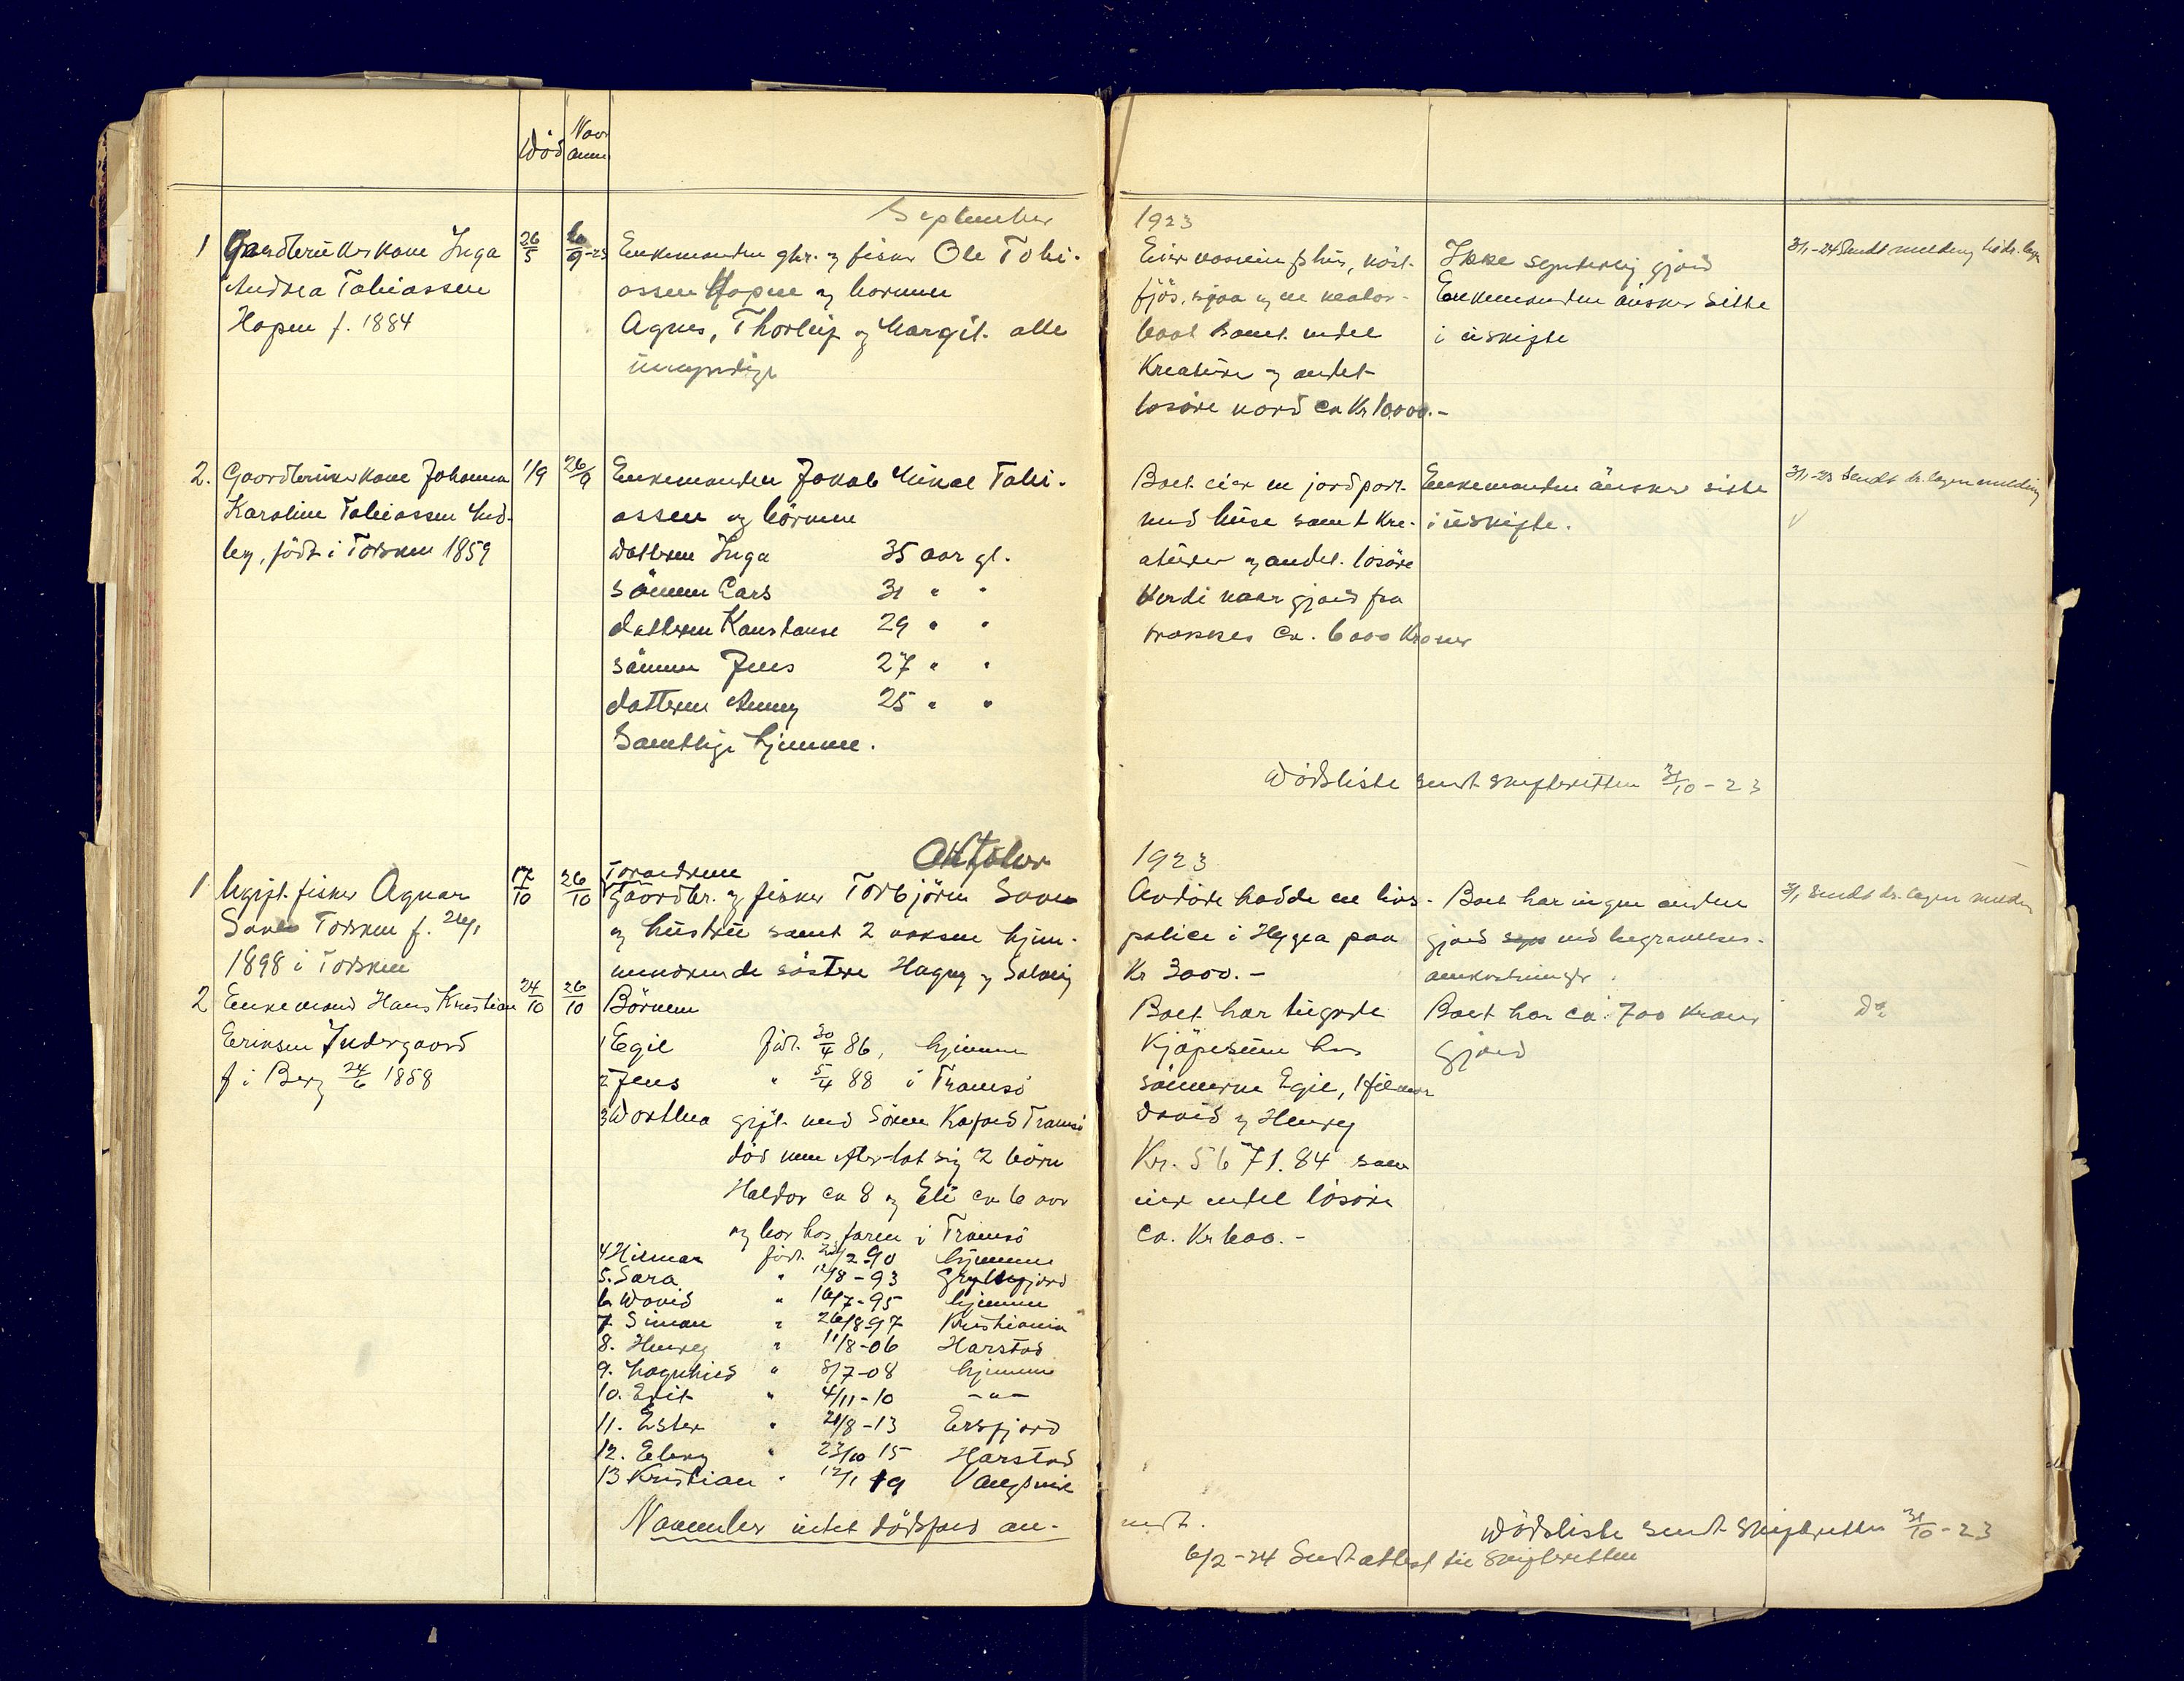 Død
September 1923
1 Gaardbrukerkone Inga
Andrea Tobiassen
Hopen f. 1884
26/5
Enkemanden gbr. og fisker Ole Tobi-
assen Hopen og barnene
Agnes, Thorleif og Margit. alle
umyndige
Eier vaaningshus, nöst.
fjös, sjaa og en motor-
baat samt endel
Kreaturer og andet
lösöre værd ca Kr 10,000.-
Ikke synderlig gjæld
Enkemanden önsker sitte
i uskifte
3/1-24 Sendt melding
2. Gaardbrukerkone Johanna
Karoline Tobiassen Med-
by, född i Torsken 1859
1/9
26/9
Enkemanden Jakob Mikal Tobi-
assen og börnene
datteren Inga 35 aar gl.
sönnen Lars 31 " "
datteren Konstanse 29 " "
sönnen Jens 27 " "
datteren Anny 25 " "
Samtlige hjemme.
Boet eier en jordpart
med huse samt Kre-
aturer og andet lösöre
Verdi naar gjæld fra
trækkes ca. 6000 Kroner
Enkemanden önsker sitte
i uskifte.
Sendt melding
Dödsliste sendt skifteretten 31/10-23
Oktober 1923
1 Ugift fisker Agnar
Torsken f.
1898 i Torsken
17/10
26/10
Forældrene
Gaardbr. og fisker Torbjörn
og hustru samt 2 voksne hjem-
meværende söstre Hagny og Solveig
Avdöde hadde en livs-
police i Hygea paa
Kr 3000.-
Boet har ingen anden
gjæld end begravelses-
omkostninger.
Sendt melding
2 Enkemand Hans Kristian
Eriksen Indergaard
f i Berg 24/6 1858
24/10
26/10
Börnene
1 Egil född. 30/4 86, hjemme
2 Jens " 5/4 88 i Tromsö
3 Dorthea gift med Sören Tromsö
död men efterlot sig 2 börn
Haldor ca 8 og Eli ca 6 aar
og bor hos faren i Tromsö
4 Hilmar född. 2-90 hjemme
5. Sara " 8-93 Gryllefjord
6 David " 16/7-95 hjemme
7. Simon " 26/8-97 Kristiania
8. Henry " 11/8-06 Harstad
9. Magnhild " 8/7-08 hjemme
10. Erit " 4/11-10 -"-
11. Ester " 21/8-13 Ersfjord
12. Eleny " 23/10 15 Harstad
13 Kristian " 12/1 19 Vangsvik
Boet har tilgode
Kjöpesum hos
sönnerne Egil, Hilmar
David og Henry
Kr. 5671.84 som
eier endel lösöre
ca. Kr 600.-
Boet har ca. 700 Kroner
gjæld
Do
November intet dödsfald an-
meldt.
Dödsliste sendt skifteretten 31/10-23
6/2-24 Sendt attest til skifteretten